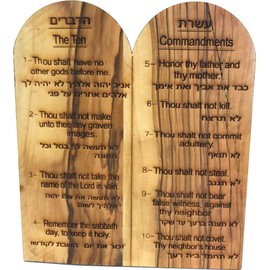 הדברים
The Ten
1- Thou shalt have no
other gods before me.
יהוה אלהיך לא יהיה לך
אלהים אחרים על פני
2- Thou shalt not make
unto thee any graven
images.
לא תעשה לך וכל
תמונה
3- Thou shalt not take the
name of the Lord in vain.
לא תשא את שם יהוה
אלהיך לשוא
4- Remember the sabbath
day, to keep it holy.
זכור את יום השבת
עשרת
Commandments
5- Honor thy father and
thy mother.
כבד את אביך ואת אימך
6- Thou shalt not kill.
לא
7- Thou shalt not commit
adultery.
לא תנאף
8- Thou shalt not steal.
לא תגנב
9- Thou shalt not bear
false witness against
thy neighbor
לא
10- Thou shalt not covet.
Thy neighbor's house.
לא תחמד בית רעך